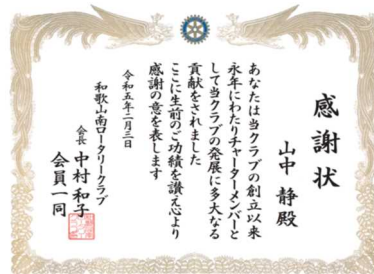 感謝状
山中 静殿
あなたは当クラブの創立以来
永年にわたりチャーターメンバーと
して当クラブの発展に多大なる
貢献をされました
ここに生前のご功績を讃え心より
感謝の意を表します
令和五年二月三日
和歌山南ロータリークラブ
会長 中村 和子
会員一同